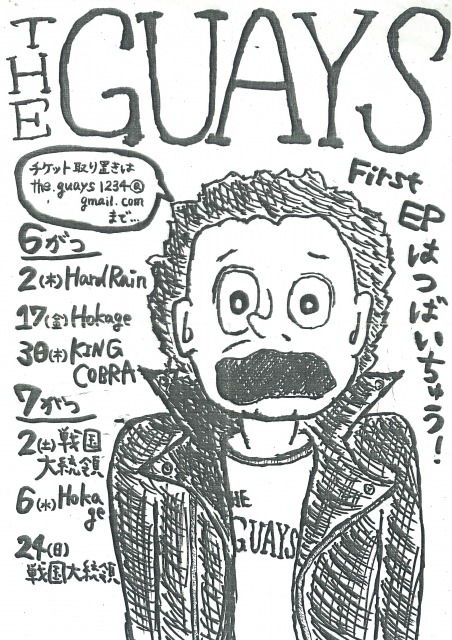 THE GUAYS
チケット取り置きは
the.guays1234@
gmail.com
まで...
First
EP
はつばいちゅう!
6がつ
2(木)Hard Rain
17(金)Hokage
30(木)KING
COBRA
7がつ
2(土)戦国
大統領
6(水)Hoka
ge
24(日)
戦国大統領
THE
GUAYS